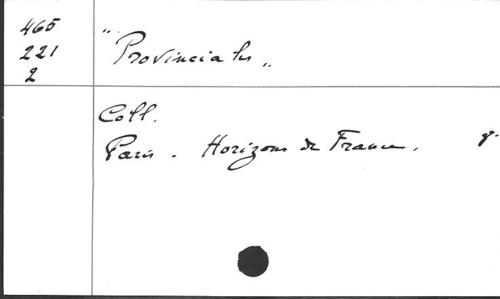 465
221
2
"Provinciales"
Coll.
Paris. Horizons de France.